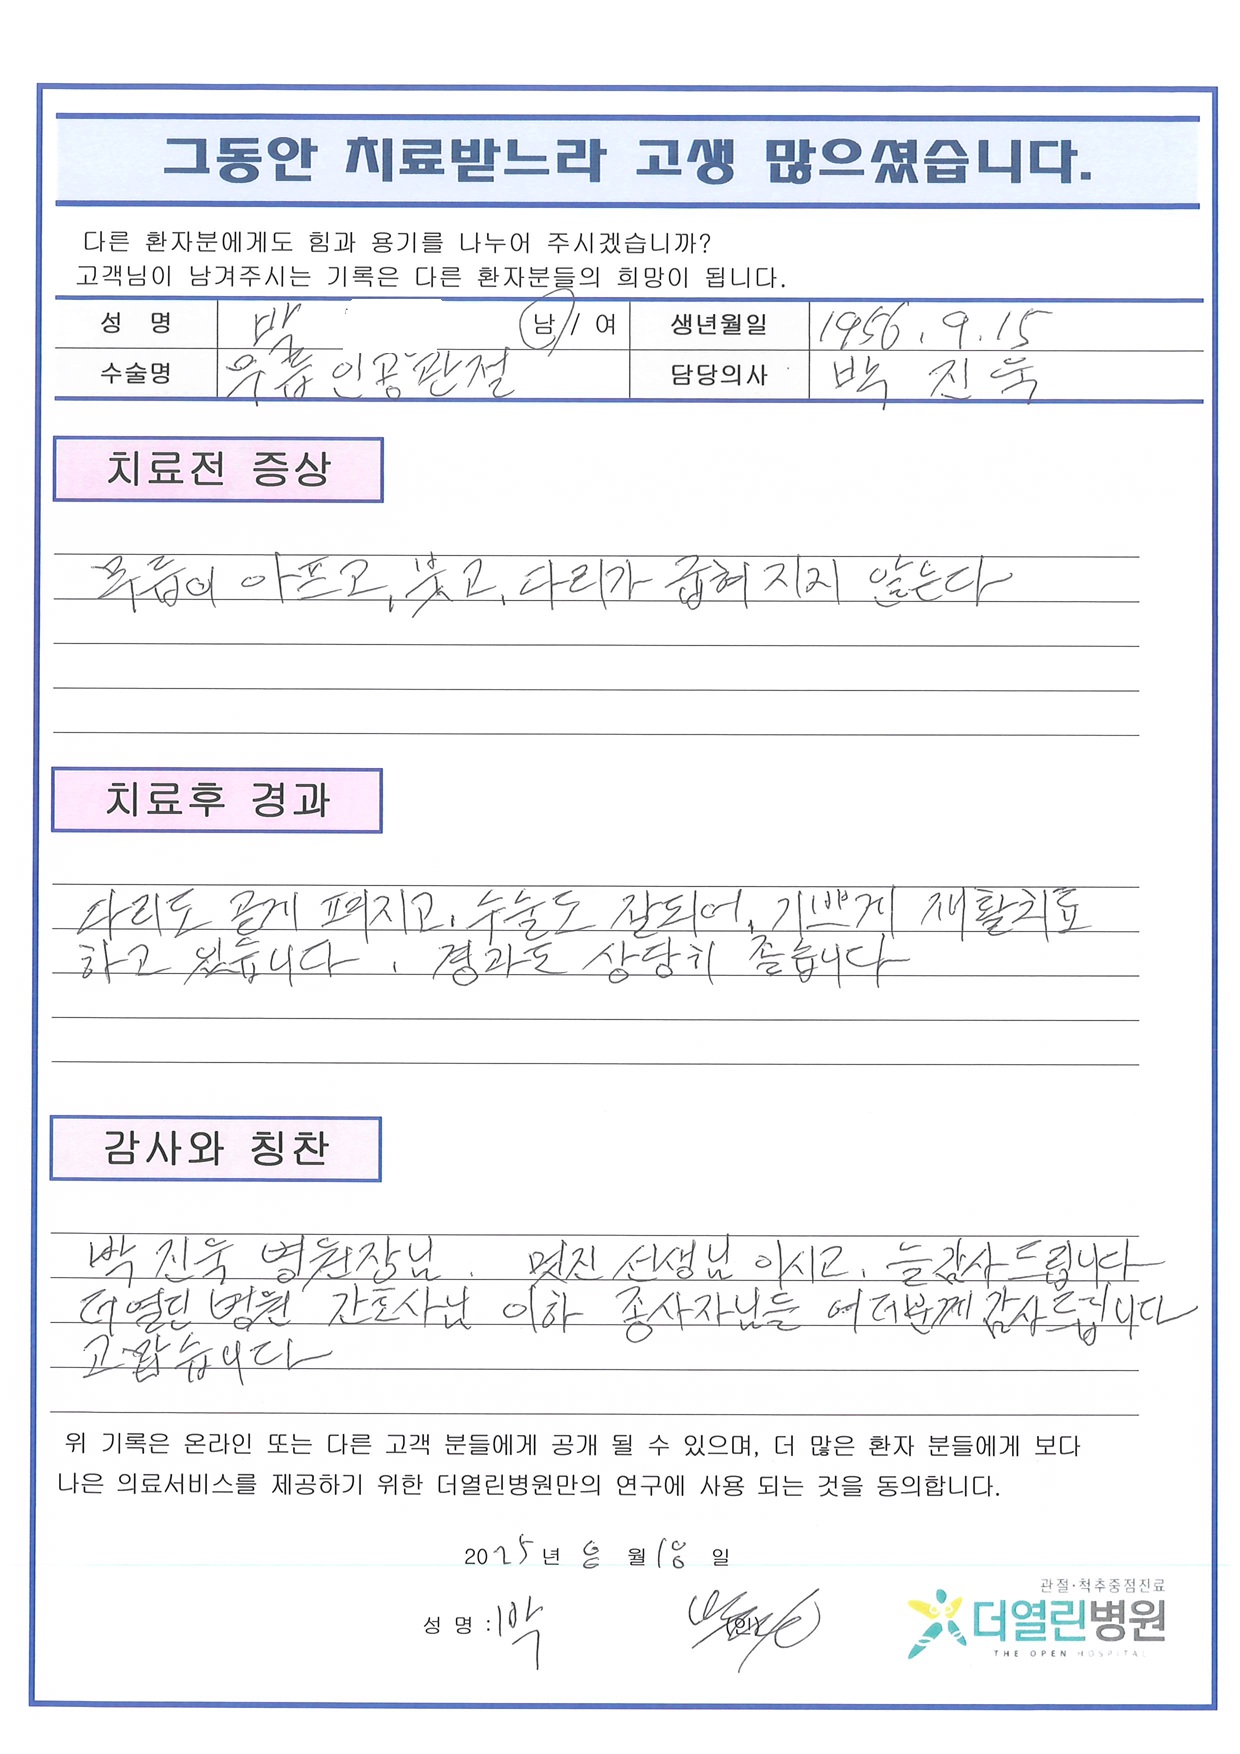 그동안 치료받느라 고생 많으셨습니다.
다른 환자분에게도 힘과 용기를 나누어 주시겠습니까?
고객님이 남겨주시는 기록은 다른 환자분들의 희망이 됩니다.
성 명 박 남 / 여 생년월일 1956. 9. 15
수술명 무릎인공관절 담당의사 박 진욱
치료전 증상
무릎이 아프고, 붓고, 다리가 굽혀지지 않는다
치료후 경과
다리도 곧게 펴지고, 수술도 잘되어, 기쁘게 재활치료
하고 있습니다. 경과도 상당히 좋습니다
감사와 칭찬
박진욱 병원장님. 멋진 선생님 이시고, 늘 감사드립니다
더열린병원 간호사님 이하 종사자님들 여러분께 감사드립니다
고맙습니다
위 기록은 온라인 또는 다른 고객 분들에게 공개 될 수 있으며, 더 많은 환자 분들에게 보다
나은 의료서비스를 제공하기 위한 더열린병원만의 연구에 사용 되는 것을 동의합니다.
2025년 8월 18일
성 명 : 박 (인)
관절·척추중점진료
더열린병원
THE OPEN HOSPITAL